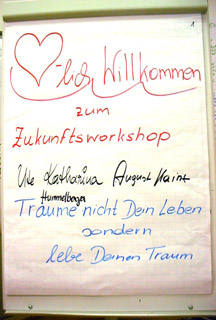 1
-lich Willkommen
zum
Zukunftsworkshop
Ute Katharina August Haint
Hummelbogen
Träume nicht Dein Leben
sondern
lebe Deinen Traum